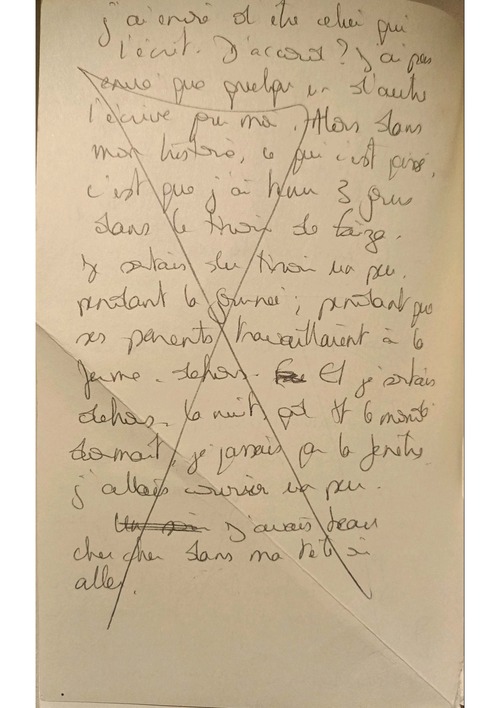 j'ai envie d'être celui qui
l'écrit. D'accord ? J'ai pas
envie que quelqu'un d'autre
l'écrive pour moi. Alors dans
mon histoire, ce qui s'est passé,
c'est que j'ai tenu 3 jours
dans le tiroir de Faïza.
Je sortais du tiroir un peu
pendant la journée, pendant que
ses parents travaillaient à la
ferme. dehors. Et je sortais
dehors la nuit qd tt le monde
dormait, je passais par la fenêtre
j'allais courir un peu.
J'avais beau
chercher dans ma tête où
aller.